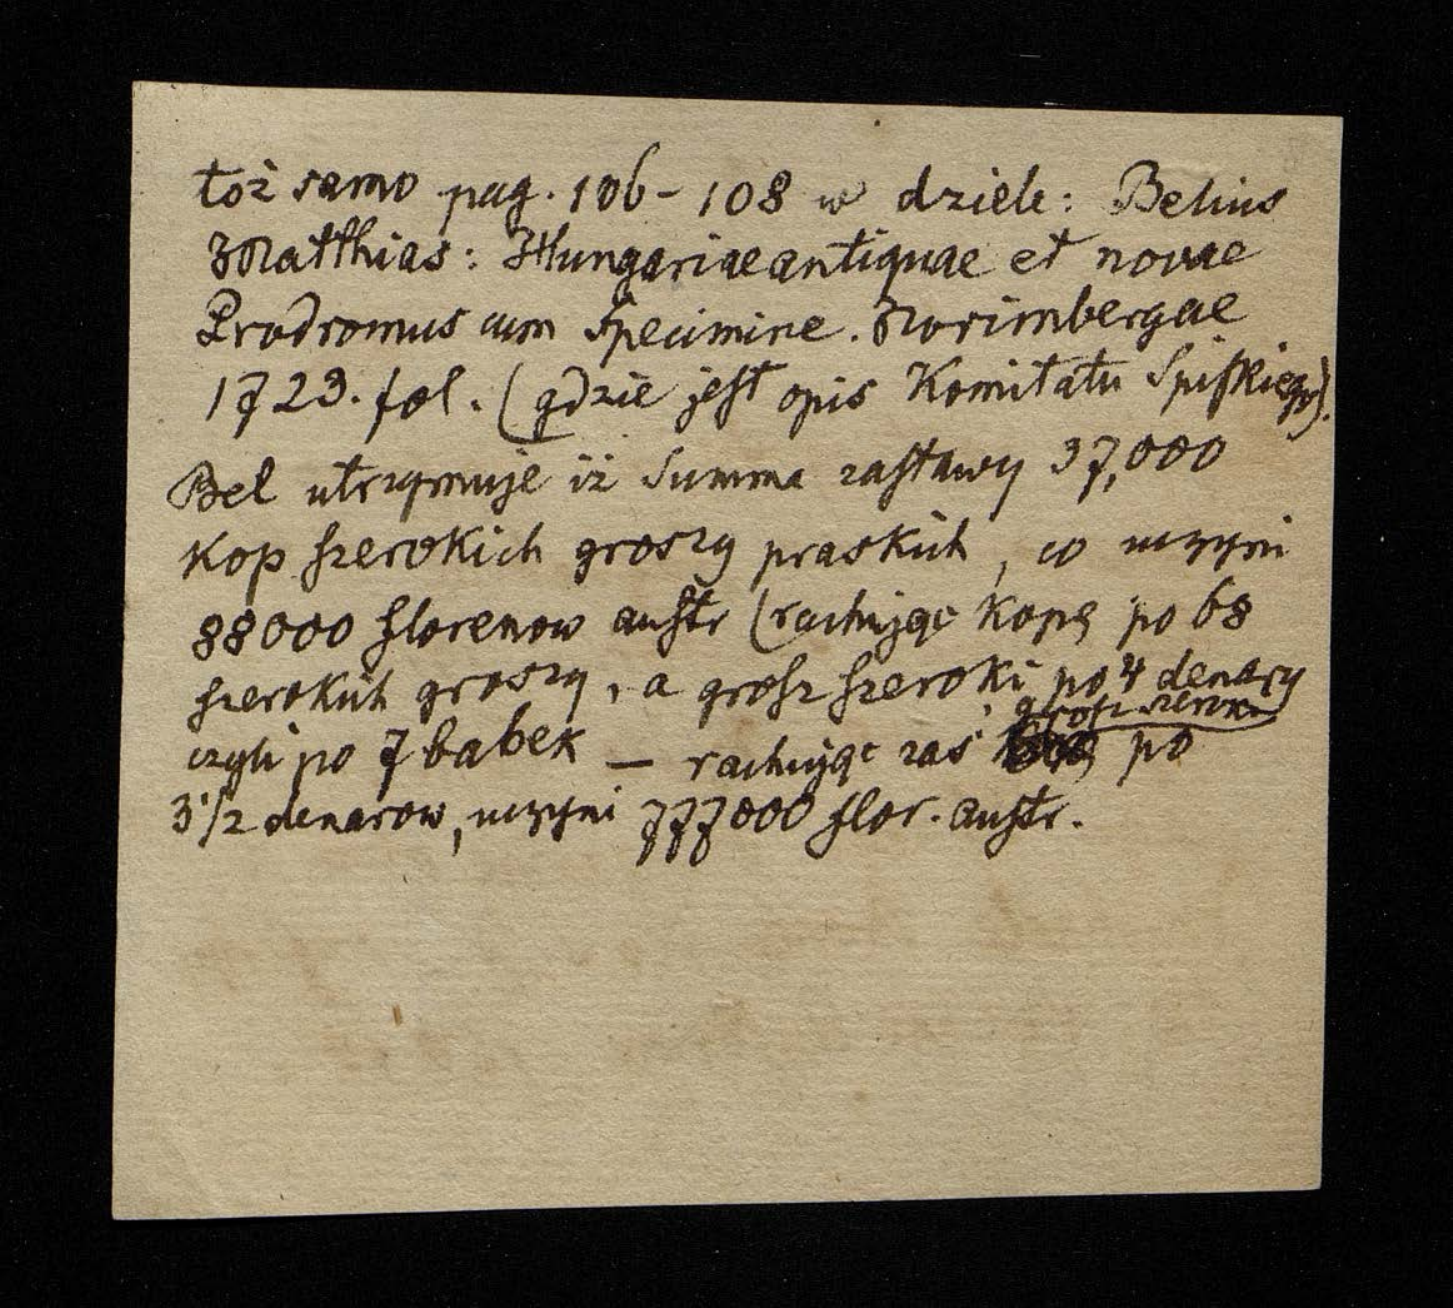 toż samo pag. 106-108 w dziele: Belius
Matthias: Hungariae antiquae et novae
Prodromus cum specimine. Norimbergae
1723. fol. (gdzie jest opis Komitatu Spiskiego).
Bel utrzymuje iż Summa zastawy 37,000
kop szerokich groszy praskich, co uczyni
88000 florenow austr (rachując kopę po 68
szerokich groszy, a grosz szeroki po 4 denary
czyli po 7 babek — rachując zaś grosz szeroki po
3 1/2 denarow, uczyni 777000 flor. austr.